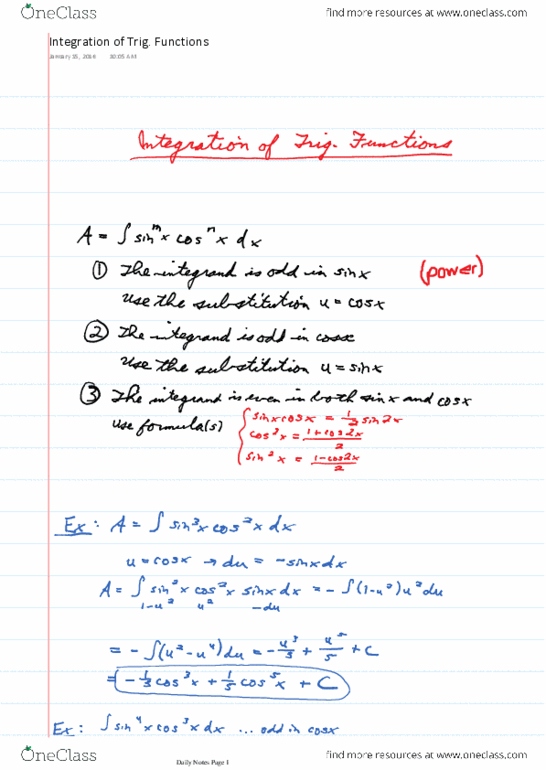 OneClass find more resources at www.oneclass.com
Integration of Trig. Functions
10:05 AM
Integration of Trig. Functions
A = ∫ sin^m x cos^n x dx
① The integrand is odd in sinx (power)
Use the substitution u = cosx
② The integrand is odd in cosx
Use the substitution u = sinx
③ The integrand is even in both sinx and cosx
Use formula(s) { sinxcosx = 1/2 sin2x
cos²x = (1+cos2x)/2
sin²x = (1-cos2x)/2
Ex: A = ∫ sin³x cos²x dx
u = cosx → du = -sinxdx
A = ∫ sin²x cos²x sinxdx = -∫(1-u²)u²du
1-u² u² -du
= -∫(u²-u⁴)du = -u³/3 + u⁵/5 + C
= -1/3 cos³x + 1/5 cos⁵x + C
Ex: ∫ sin⁴x cos³x dx ... odd in cosx
Daily Notes Page 1
OneClass find more resources at www.oneclass.com